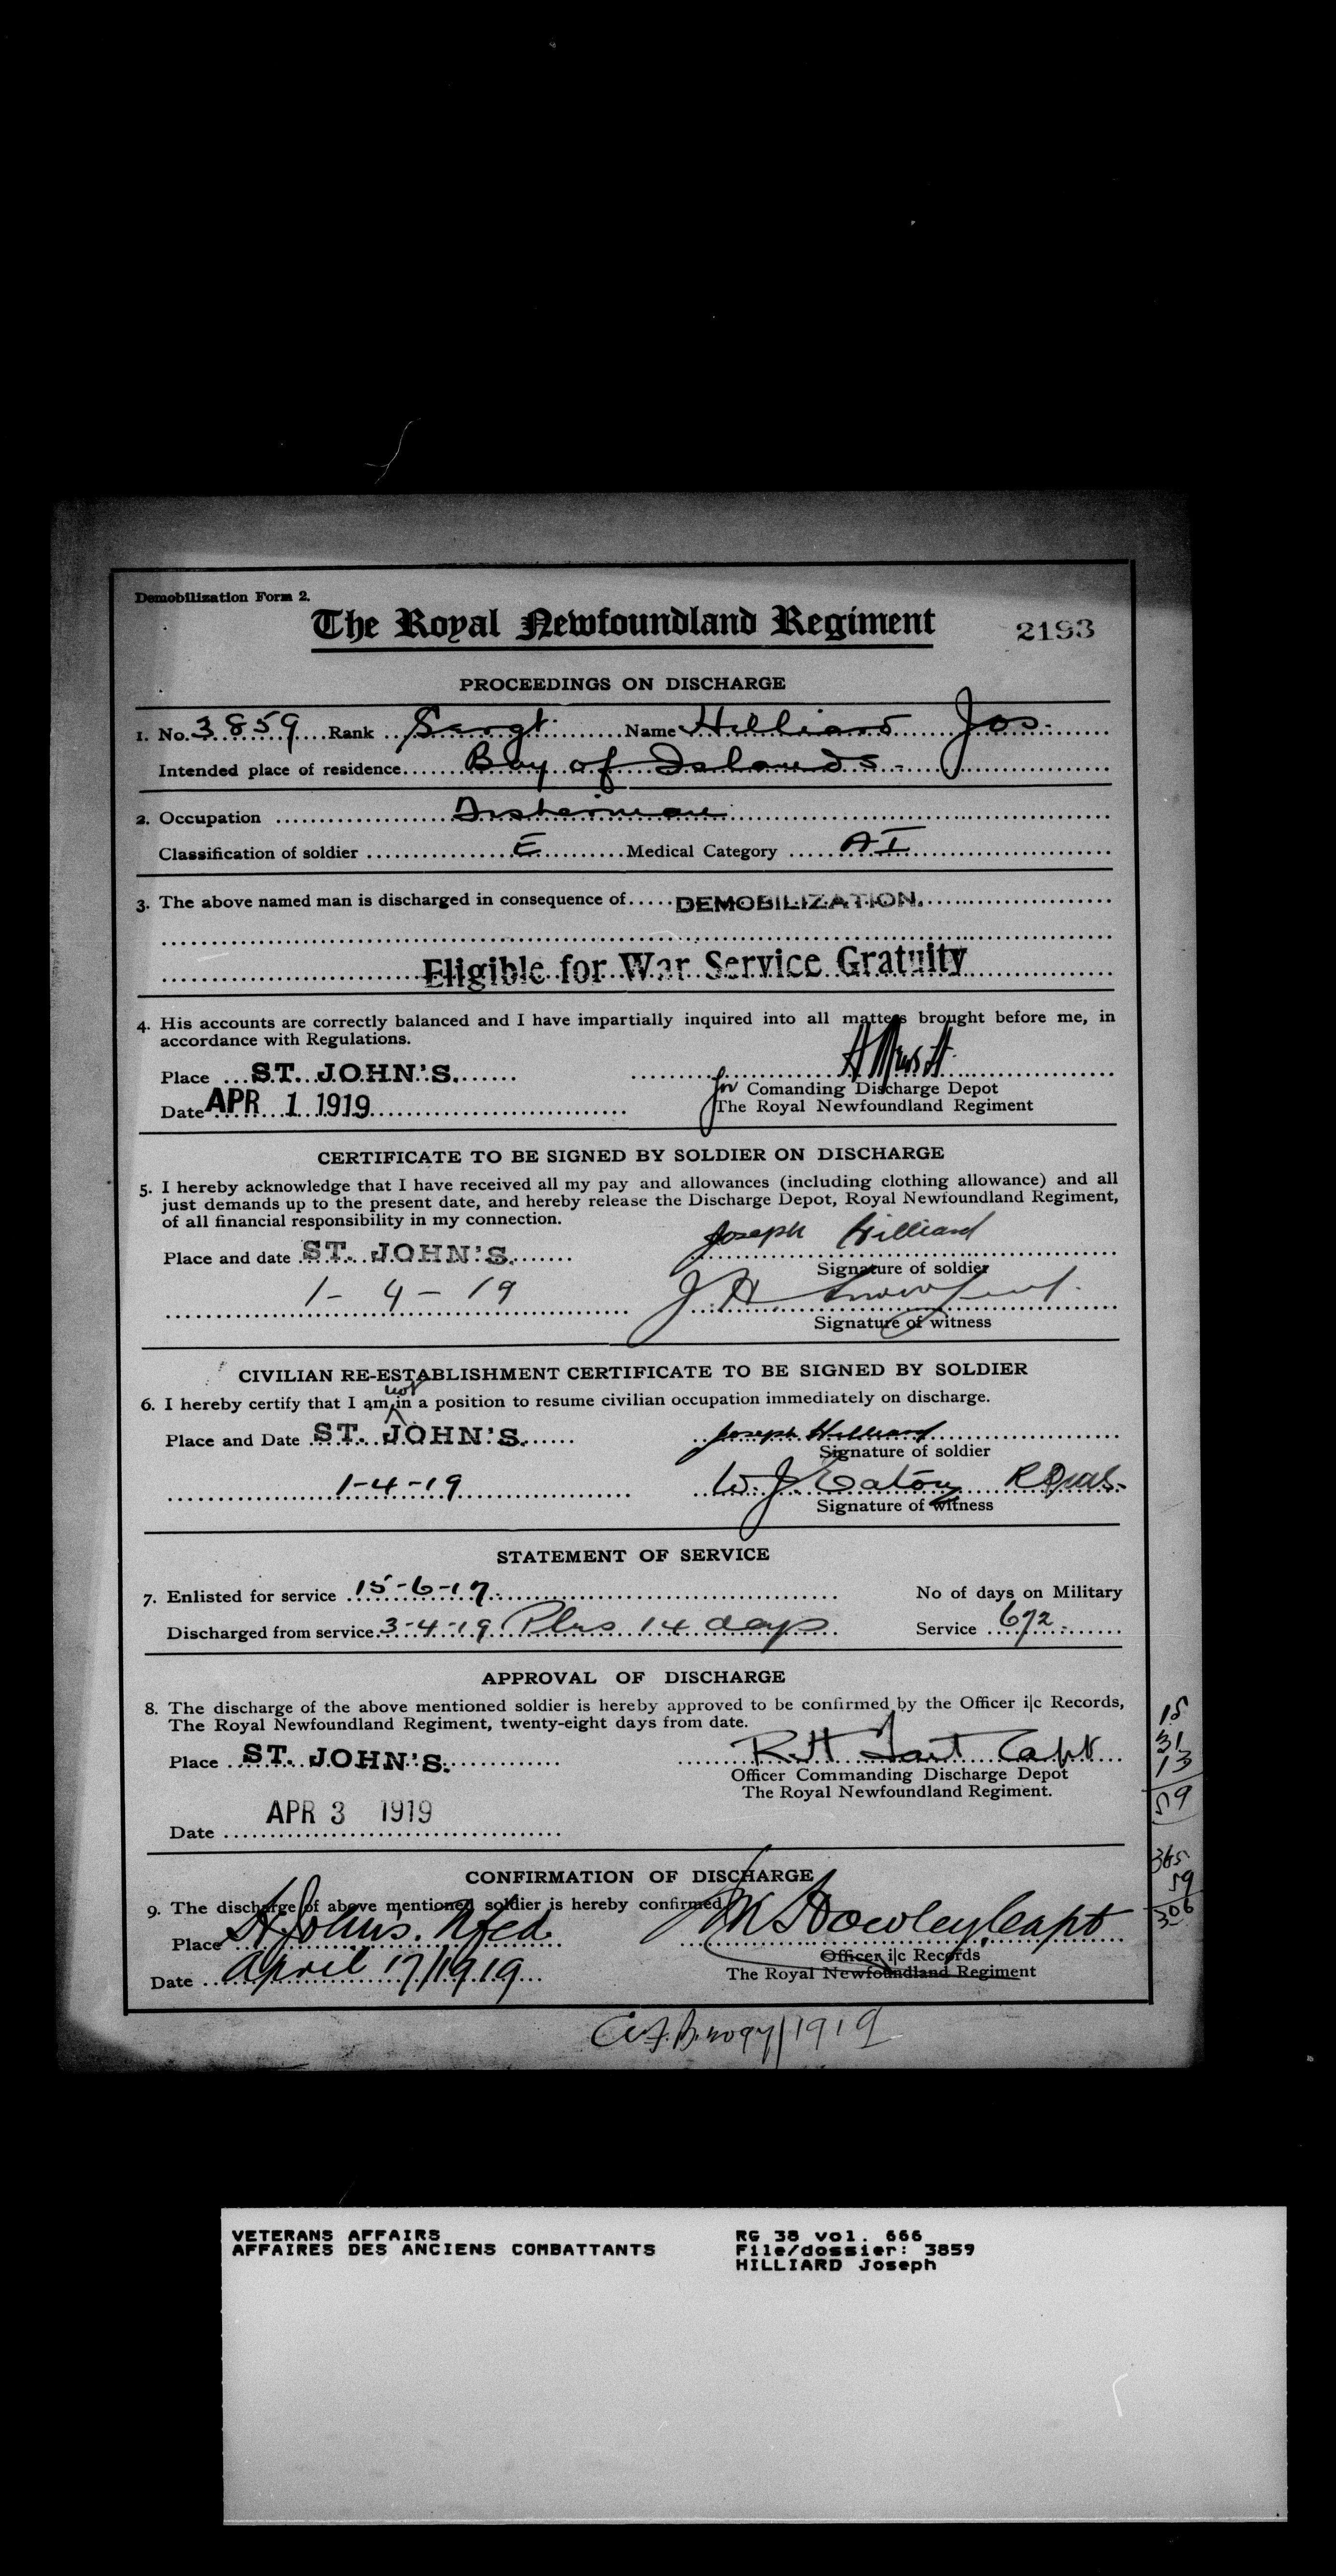 Demobilization Form 2.
The Royal Newfoundland Regiment 2193
PROCEEDINGS ON DISCHARGE
1. No. 3859 Rank Sergt. Name Hilliard Jos.
Intended place of residence Bay of Islands.
2. Occupation Fisherman
Classification of soldier E Medical Category AI
3. The above named man is discharged in consequence of DEMOBILIZATION.
Eligible for War Service Gratuity
4. His accounts are correctly balanced and I have impartially inquired into all matters brought before me, in
accordance with Regulations.
Place ST. JOHN'S.
for Comanding Discharge Depot
Date APR 1 1919 The Royal Newfoundland Regiment
CERTIFICATE TO BE SIGNED BY SOLDIER ON DISCHARGE
5. I hereby acknowledge that I have received all my pay and allowances (including clothing allowance) and all
just demands up to the present date, and hereby release the Discharge Depot, Royal Newfoundland Regiment,
of all financial responsibility in my connection.
Place and date ST. JOHN'S. Joseph Hilliard
Signature of soldier
1-4-19 J H
Signature of witness
CIVILIAN RE-ESTABLISHMENT CERTIFICATE TO BE SIGNED BY SOLDIER
6. I hereby certify that I am not in a position to resume civilian occupation immediately on discharge.
Place and Date ST. JOHN'S. Joseph Hilliard
Signature of soldier
1-4-19 W. J Eaton
Signature of witness
STATEMENT OF SERVICE
7. Enlisted for service 15-6-17. No of days on Military
Discharged from service 3-4-19 Plus 14 days Service 672
APPROVAL OF DISCHARGE
8. The discharge of the above mentioned soldier is hereby approved to be confirmed by the Officer i|c Records,
The Royal Newfoundland Regiment, twenty-eight days from date.
Place ST. JOHN'S. R H Tait Capt
Officer Commanding Discharge Depot
The Royal Newfoundland Regiment.
APR 3 1919
Date
15
31
13
59
365
59
306
CONFIRMATION OF DISCHARGE
9. The discharge of above mentioned soldier is hereby confirmed
Place St Johns. Nfld M S Howley, Capt
Officer i|c Records
Date April 17/1919 The Royal Newfoundland Regiment
VETERANS AFFAIRS RG 38 vol. 666
AFFAIRES DES ANCIENS COMBATTANTS File/dossier: 3859
HILLIARD Joseph